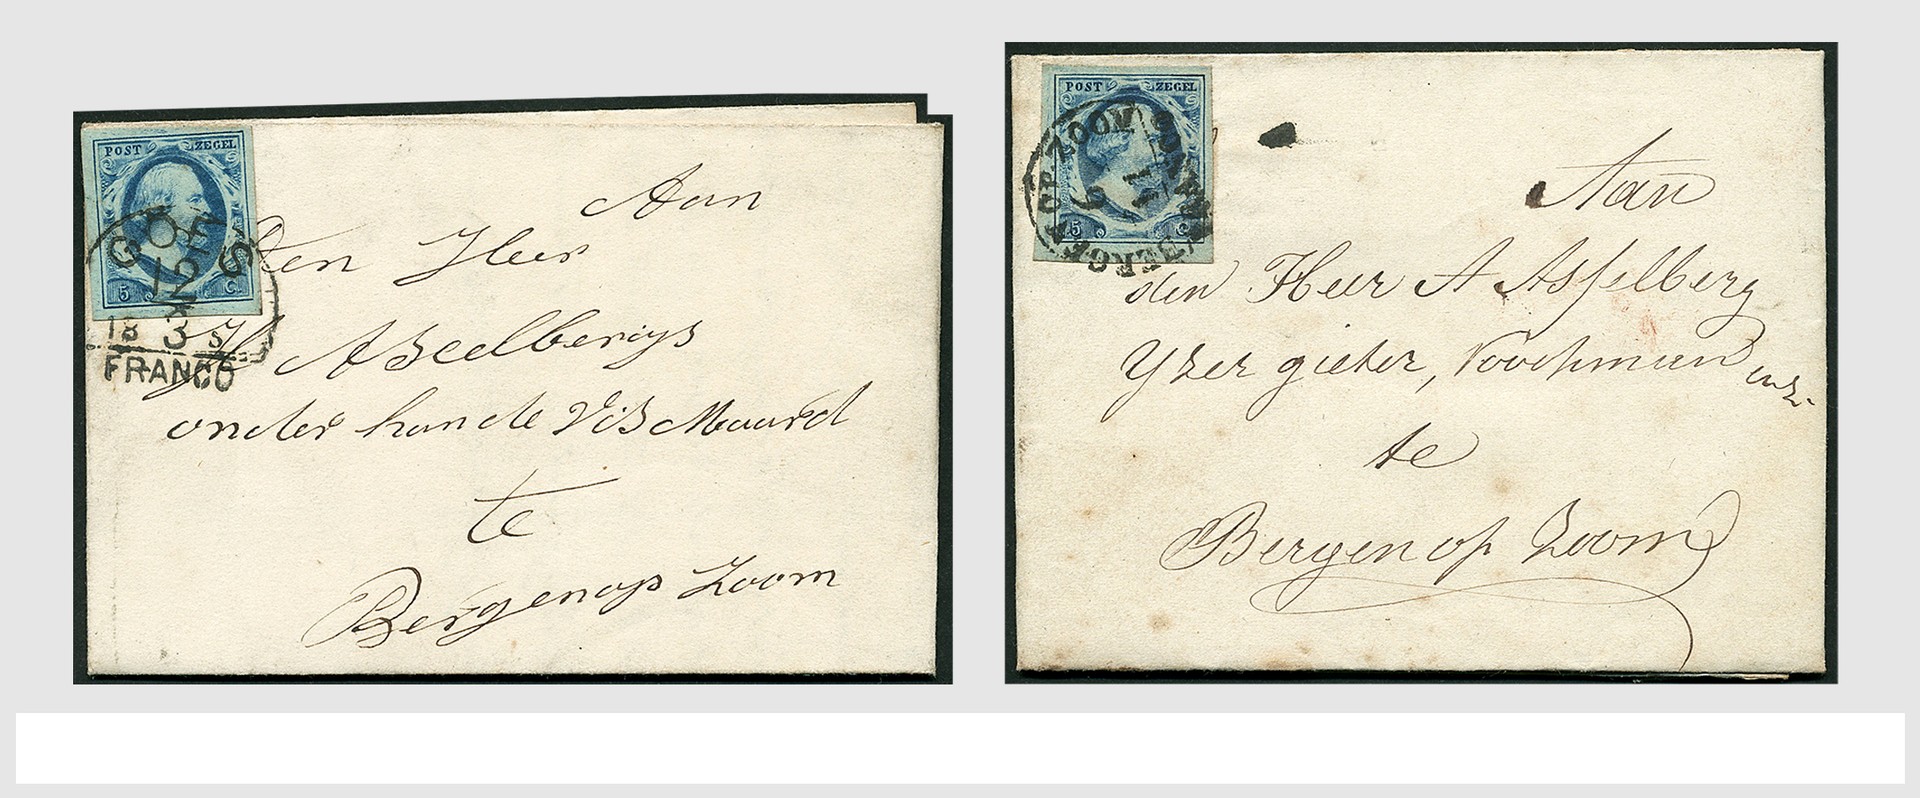 POST ZEGEL
5 C
GOES
12
3
18
FRANCO
Aan
den Heer
A Bselbergs
onder han de Vis Maard
te
Bergen op Zoom
POST ZEGEL
5 C
BERGEN OP ZOOM
6
11
Aan
den Heer A Asselberg
Yzer gieter, Koopman enz.
te
Bergen op Zoom